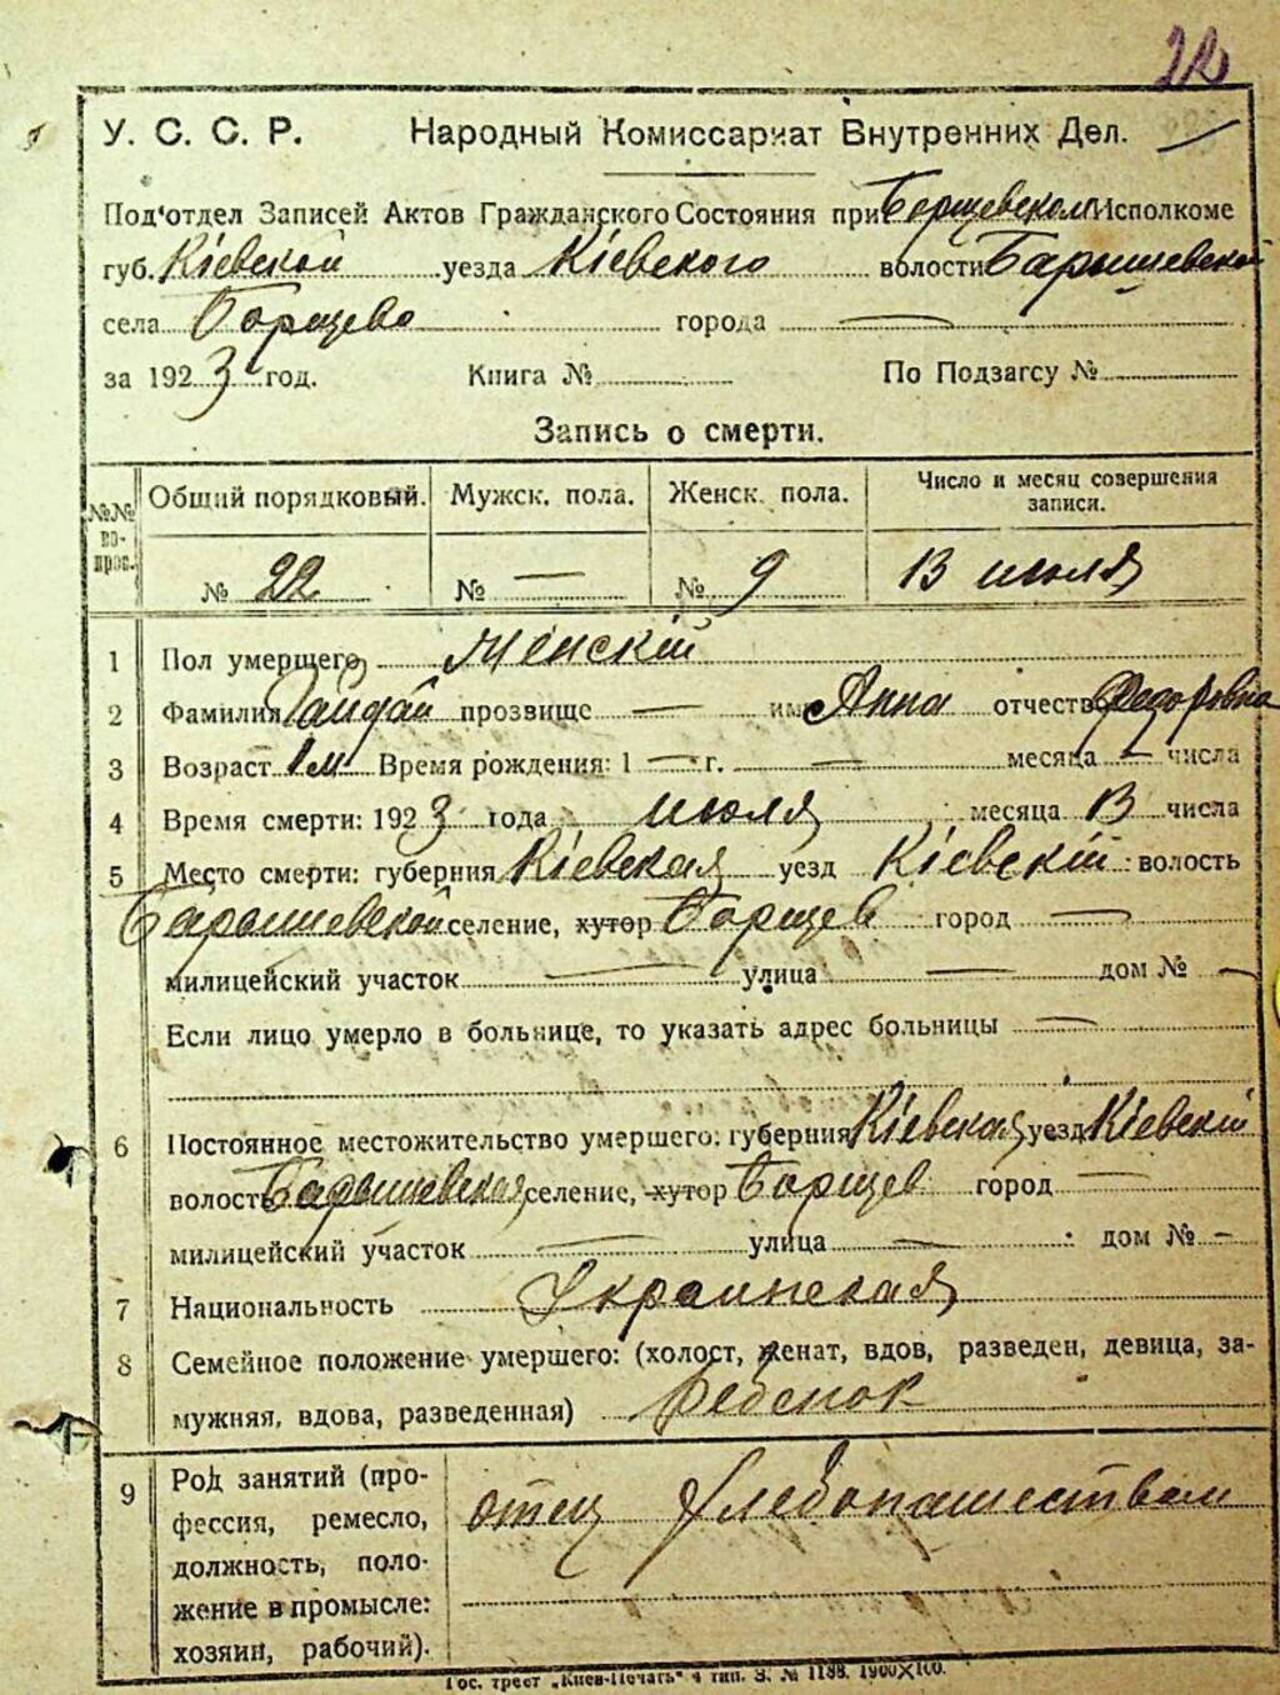 22
У. С. С. Р. Народный Комиссариат Внутренних Дел.
Под'отдел Записей Актов Гражданского Состояния при Борщевском Исполкоме
губ. Кіевской уезда Кіевского волости Барышевской
села Борщево города —
за 1923 год. Книга № По Подзагсу №
Запись о смерти.
№№ вопрос. Общий порядковый. Мужск. пола. Женск. пола. Число и месяц совершения записи.
№ 22 № — № 9 13 июля
1 Пол умершего Женскій
2 Фамилия Гайдай прозвище — имя Анна отчество Федоровна
3 Возраст 1 м Время рождения: 1 — г. — месяца — числа
4 Время смерти: 1923 года июля месяца 13 числа
5 Место смерти: губерния Кіевская уезд Кіевскій волость
Барышевской селение, хутор Борщев город —
милицейский участок — улица — дом № —
Если лицо умерло в больнице, то указать адрес больницы —
6 Постоянное местожительство умершего: губерния Кіевская уезд Кіевскій
волость Барышевская селение, хутор Борщев город —
милицейский участок — улица — дом № —
7 Национальность Украинская
8 Семейное положение умершего: (холост, женат, вдов, разведен, девица, за-
мужняя, вдова, разведенная) Ребенок
9 Род занятий (про-
фессия, ремесло,
должность, поло-
жение в промысле:
хозяин, рабочий).
отец Хлебопашеством
Гос. трест „Киев-Печать“ 4 тип. З. № 1188. 1900X100.